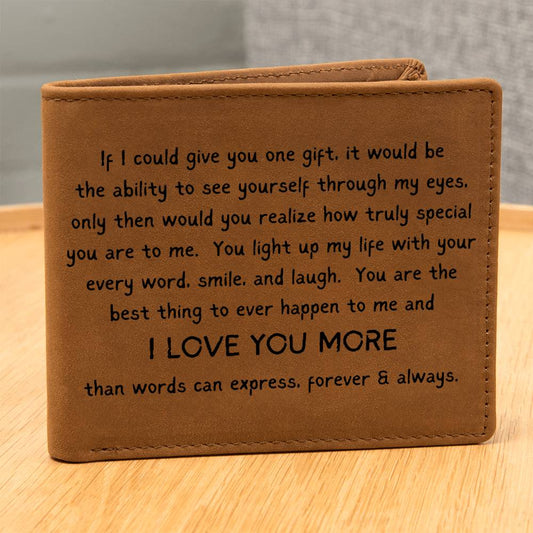 If I could give you one gift, it would be
the ability to see yourself through my eyes,
only then would you realize how truly special
you are to me. You light up my life with your
every word, smile, and laugh. You are the
best thing to ever happen to me and
I LOVE YOU MORE
than words can express, forever & always.